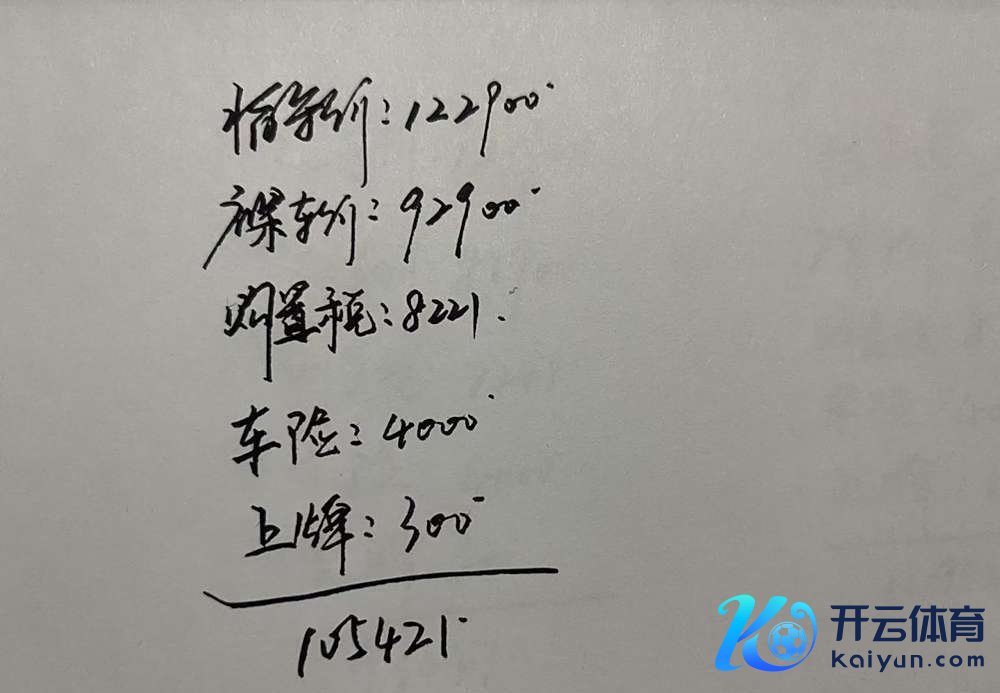 指导价：122900
裸车价：92900
购置税：8221.
车险：4000
上牌：300
105421
开云体育
kaiyun.com